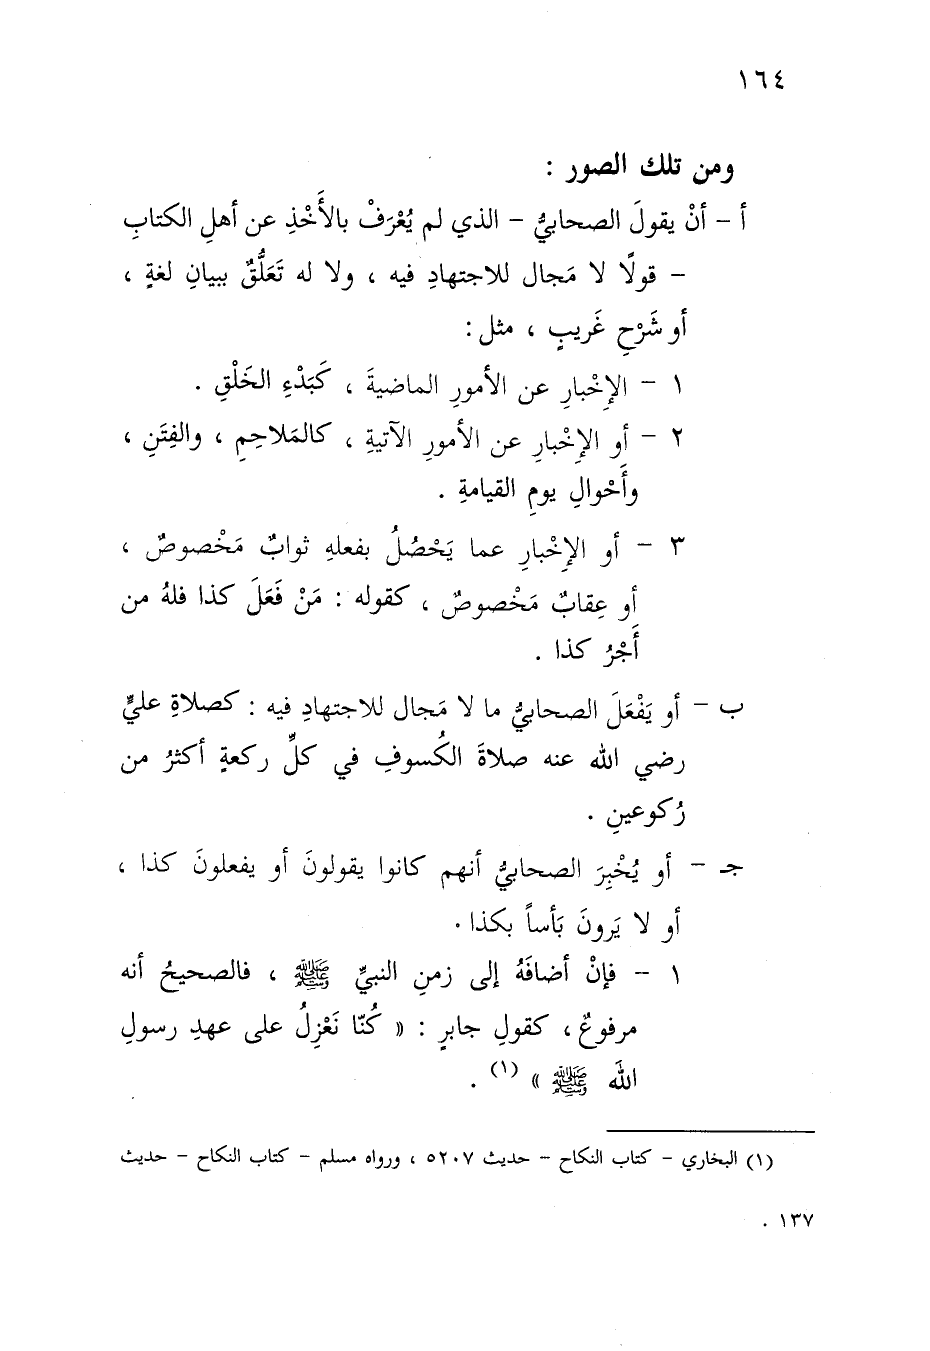 ١٦٤
ومن تلك الصور :
أ – أنْ يقولَ الصحابيُّ – الذي لم يُعْرَفْ بالأَخْذِ عن أهلِ الكتابِ
– قولًا لا مَجال للاجتهادِ فيه ، ولا له تَعَلُّقٌ ببيانِ لغةٍ ،
أو شَرْحِ غَريبٍ ، مثل :
١ – الإِخْبارِ عن الأمورِ الماضيةَ ، كَبَدْءِ الخَلْقِ .
٢ – أو الإِخْبارِ عن الأمورِ الآتيةِ ، كالمَلاحِمِ ، والفِتَنِ ،
وأَحْوالِ يومِ القيامةِ .
٣ – أو الإِخْبارِ عما يَحْصُلُ بفعلهِ ثوابٌ مَخْصوصٌ ،
أو عِقابٌ مَخْصوصٌ ، كقوله : مَنْ فَعَلَ كذا فلهُ من
أَجْرُ كذا .
ب – أو يَفْعَلَ الصحابيُّ ما لا مَجال للاجتهادِ فيه : كصلاةِ عليٍّ
رضي الله عنه صلاةَ الكُسوفِ في كلِّ ركعةٍ أكثرُ من
رُكوعينِ .
جـ – أو يُخْبِرَ الصحابيُّ أنهم كانوا يقولونَ أو يفعلونَ كذا ،
أو لا يَرونَ بَأساً بكذا .
١ – فإنْ أضافَهُ إلى زمنِ النبيِّ ﷺ ، فالصحيحُ أنه
مرفوعٌ ، كقولِ جابرٍ : « كُنّا نَعْزِلُ على عهدِ رسولِ
الله ﷺ » (١) .
(١) البخاري – كتاب النكاح – حديث ٥٢٠٧ ، ورواه مسلم – كتاب النكاح – حديث
١٣٧ .